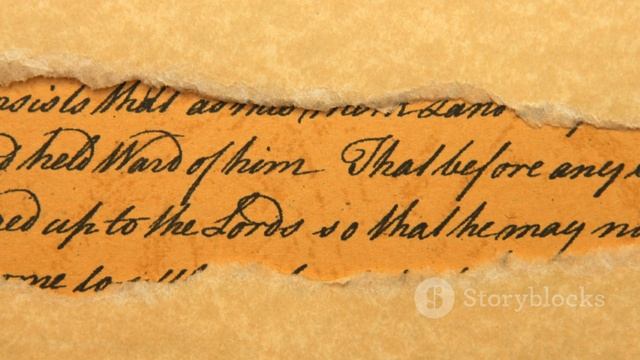 nsists that
d held Ward of him That before any
ed up to the Lords so that he may no
me to
Storyblocks